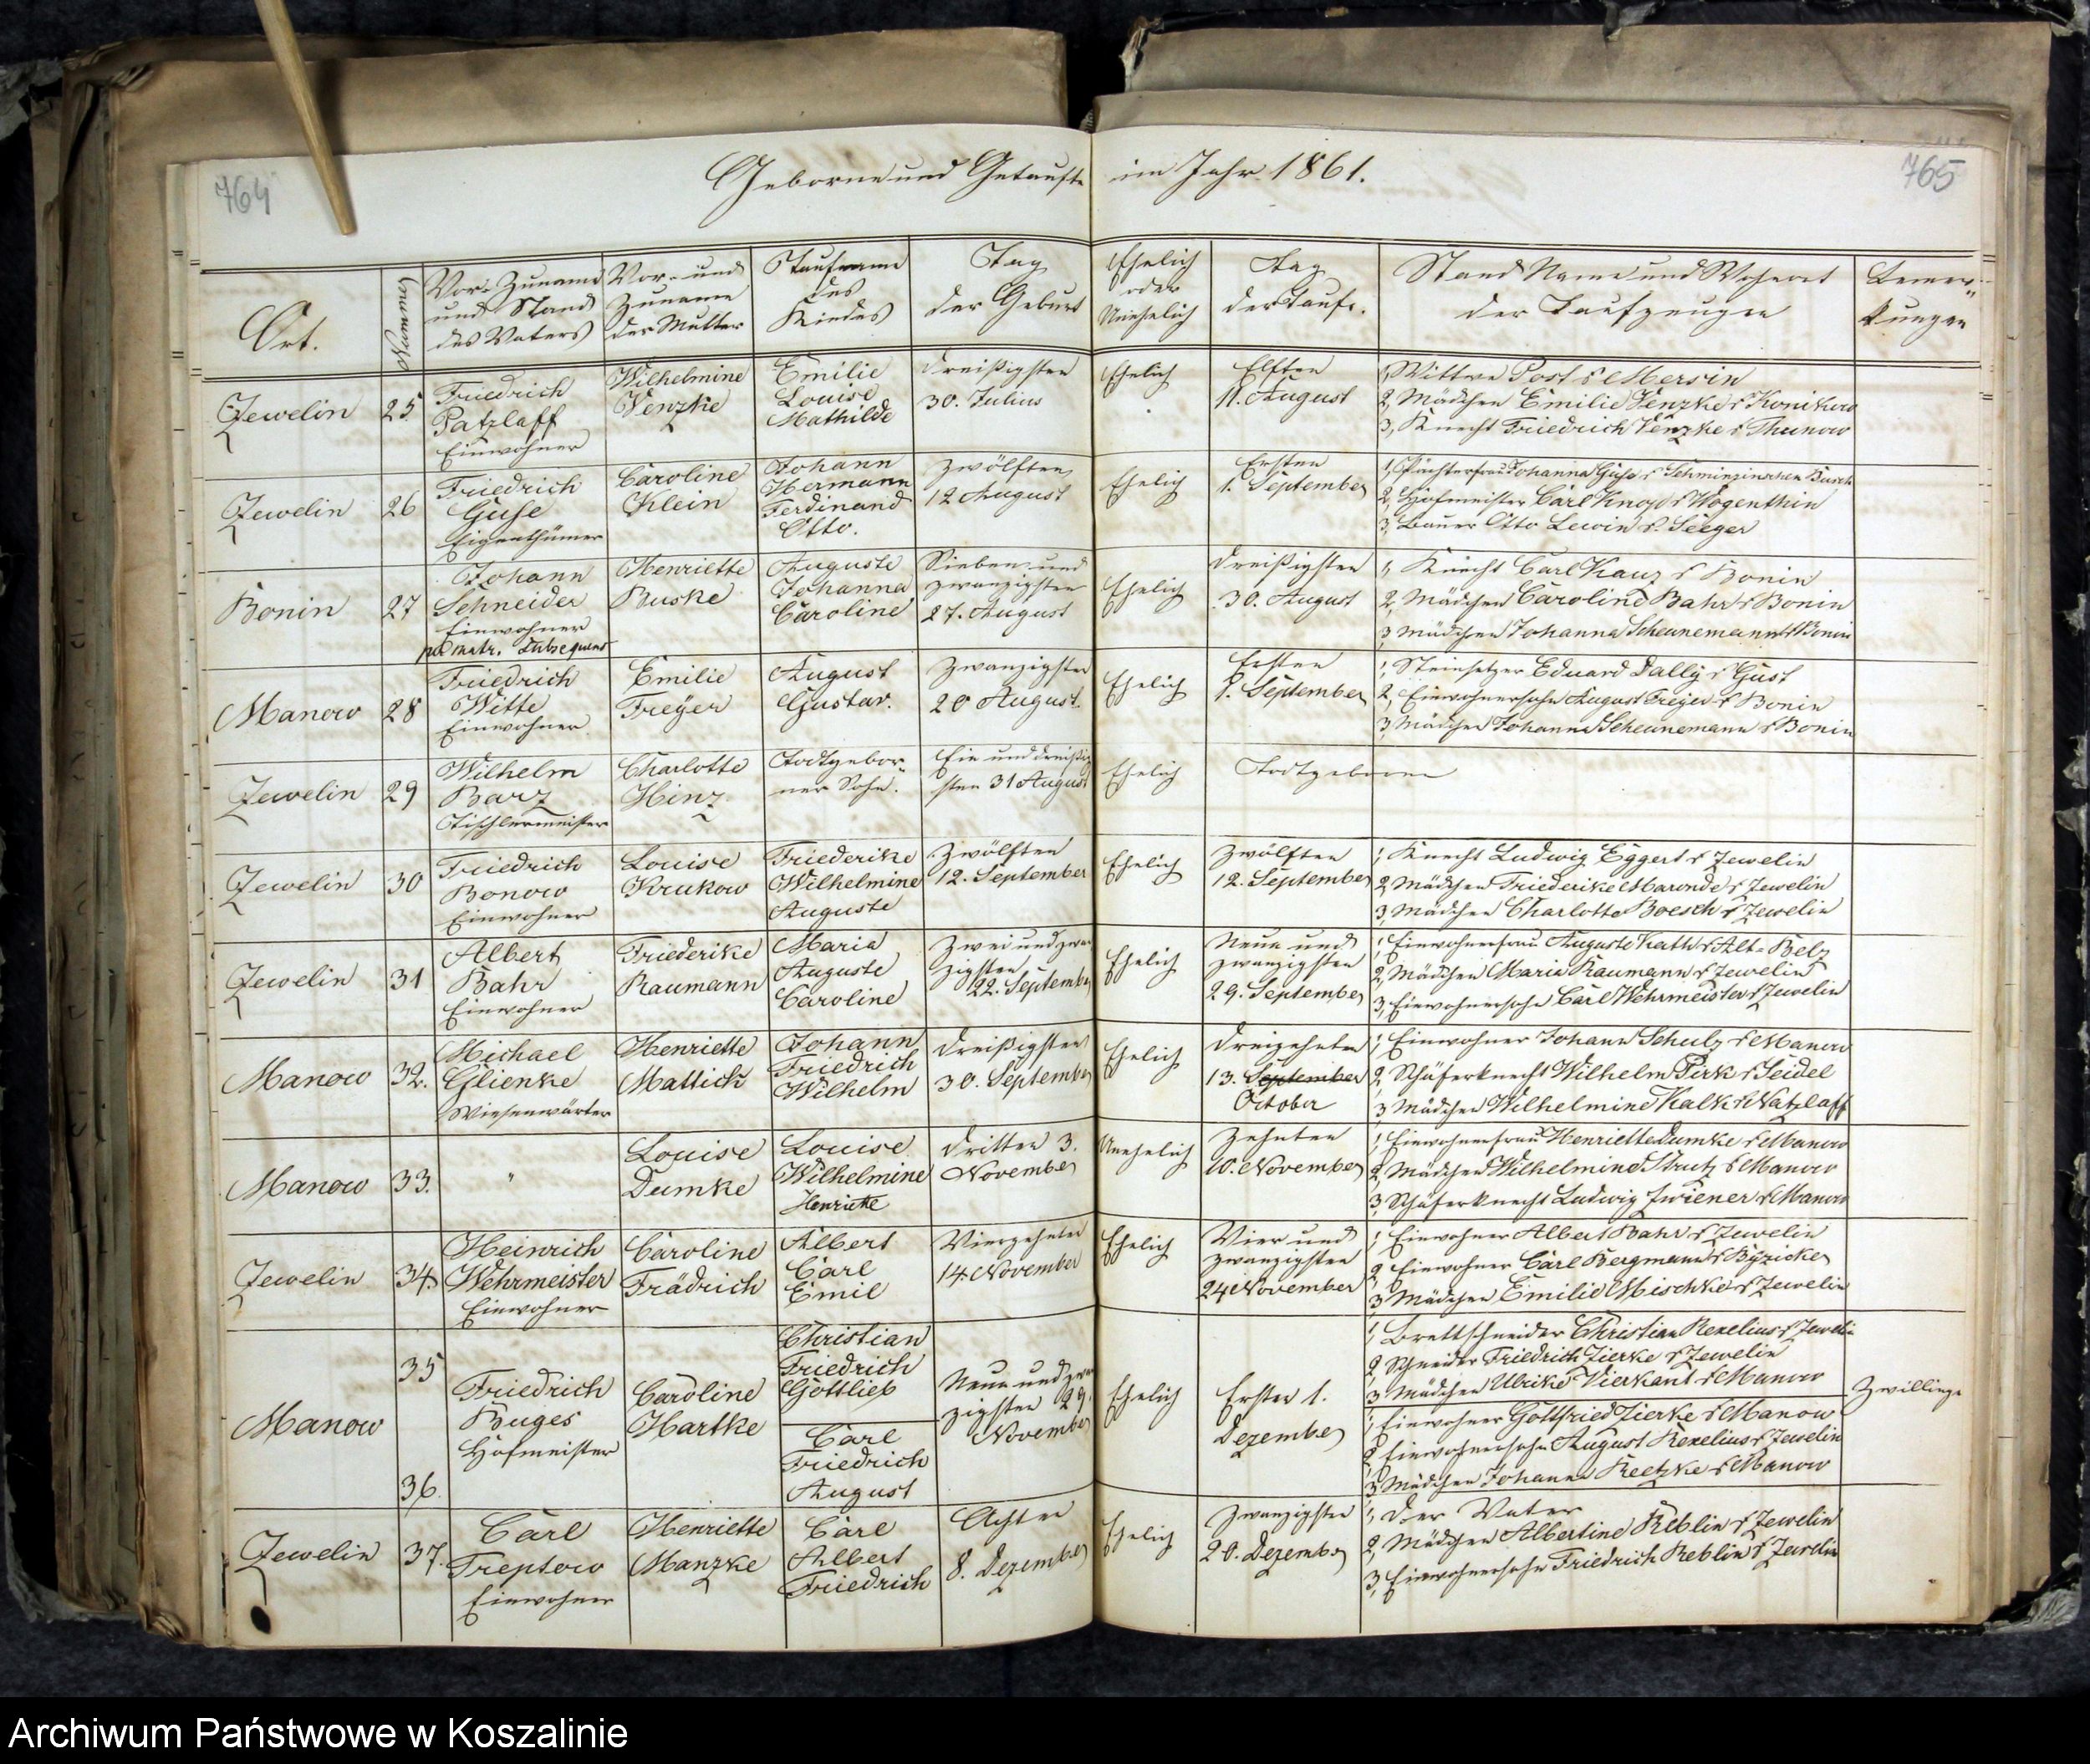 764
Geborne und Getaufte im Jahr 1861.
765
Ort.
Nummer
Vor- Zuname und Stand des Vaters
Vor- und Zuname der Mutter
Taufname des Kindes
Tag der Geburt
Ehelich oder Unehelich
Tag der Taufe.
Stand Name und Wohnort der Taufzeugen
Bemerkungen
Zewelin 25. Friedrich Patzlaff Einwohner
Wilhelmine Venzke
Emilie Louise Mathilde
Dreißigsten 30. Julius
Ehelich
Elften 11. August
1, Wittwe Post s Mersin
2, Mädchen Emilie Venzke s Konikow
3, Knecht Friedrich Venzke s Thunow
Zewelin 26 Friedrich Guse Eigenthümer
Caroline Klein
Johann Hermann Ferdinand Otto.
Zwölften 12 August
Ehelich
Ersten 1. September
1, Pächterfrau Johanna Guse s
2, Hofmeister Carl Knop s Wogenthin
3, Bauer Otto Lewin s. Seeger
Bonin 27 Johann Schneider Einwohner
p. matr. subsequens
Henriette Buske
Auguste Johanna Caroline
Sieben und zwanzigsten 27. August
Ehelich
Dreißigsten 30. August
1, Knecht Carl Kauz s Bonin
2, Mädchen Caroline Bahr s Bonin
3, Mädchen Johanna Scheunemann s Bonin
Manow 28 Friedrich Witte Einwohner
Emilie Freyer
August Gustav.
Zwanzigsten 20 August.
Ehelich
Ersten 1. September
1, Steinsetzer Eduard Dally s Gust
2, Einwohnersohn August Freyer s Bonin
3, Mädchen Johanna Scheunemann s Bonin
Zewelin 29 Wilhelm Barz Tischlermeister
Charlotte Hinz
Todtgeborner Sohn.
Ein und dreißigsten 31 August
Ehelich
Todtgeboren
Zewelin 30 Friedrich Bonow Einwohner
Louise Krukow
Friederike Wilhelmine Auguste
Zwölften 12. September
Ehelich
Zwölften 12. September
1, Knecht Ludwig Eggert s Zewelin
2, Mädchen Friederike Maronde s Zewelin
3, Mädchen Charlotte Boesch s Zewelin
Zewelin 31 Albert Bahr Einwohner
Friederike Raumann
Maria Auguste Caroline
Zwei und zwanzigsten 22. September
Ehelich
Neun und zwanzigsten 29. September
1, Einwohnerfrau Auguste Kath s Alt-Belz
2, Mädchen Maria Raumann s Zewelin
3, Einwohnersohn Carl Wehrmeister s Zewelin
Manow 32. Michael Glienke Wiesenwärter
Henriette Mattick
Johann Friedrich Wilhelm
Dreißigsten 30. September
Ehelich
Dreizehnten 13. September October
1, Einwohner Johann Schulz s Manow
2, Schäferknecht Wilhelm Pirk s Seidel
3, Mädchen Wilhelmine Kalk s Natzlaff
Manow 33. "
Louise Dumke
Louise Wilhelmine Henriette
Dritten 3. November
Unehelich
Zehnten 10. November
1, Einwohnerfrau Henriette Dumke s Manow
2, Mädchen Wilhelmine Strutz s Manow
3, Schäferknecht Ludwig Zwiener s Manow
Zewelin 34. Heinrich Wehrmeister Einwohner
Caroline Frädrich
Albert Carl Emil
Vierzehnten 14. November
Ehelich
Vier und zwanzigsten 24 November
1, Einwohner Albert Bahr s Zewelin
2, Einwohner Carl Bergmann s
3, Mädchen Emilie Mischke s Zewelin
Manow 35 36. Friedrich Buges Hofmeister
Caroline Hartke
Christian Friedrich Gottlieb
Carl Friedrich August
Neun und zwanzigsten 29. November
Ehelich
Ersten 1. Dezember
1, Brettschneider Christian Rexelius s Zewelin
2, Schneider Friedrich Zierke s Zewelin
3, Mädchen Ulrike Vierkant s Manow
1, Einwohner Gottfried Zierke s Manow
2, Einwohnersohn August Rexelius s Zewelin
3, Mädchen Johanna Reetzke s Manow
Zwillinge
Zewelin 37. Carl Treptow Einwohner
Henriette Manzke
Carl Albert Friedrich
Achten 8. Dezember
Ehelich
Zwanzigsten 20. Dezember
1, Der Vater
2, Mädchen Albertine Reblin s Zewelin
3, Einwohnersohn Friedrich Reblin s Zewelin
Archiwum Państwowe w Koszalinie